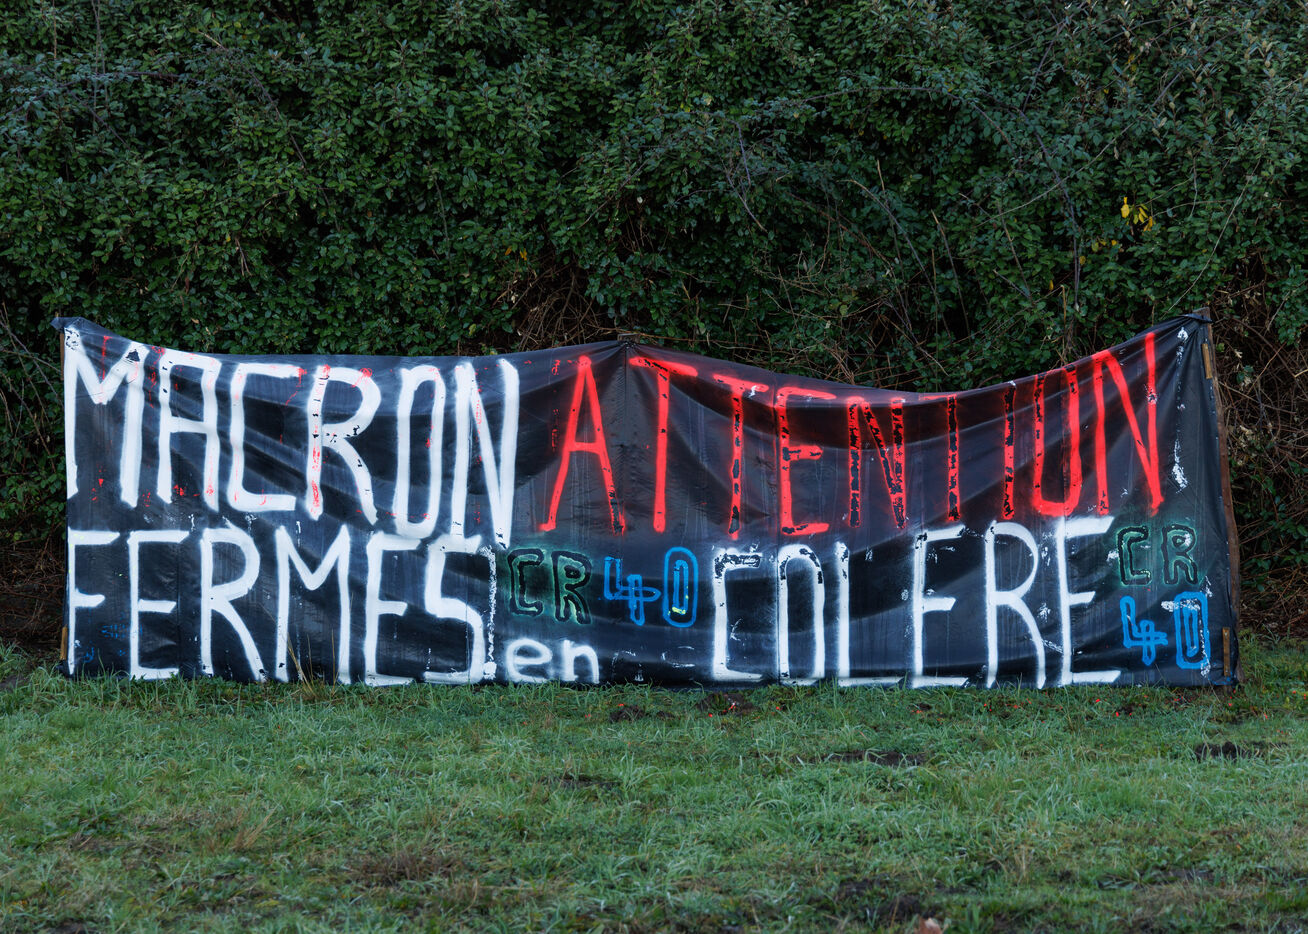 MACRON ATTENTION
FERMES en COLERE
CR 40
CR
40